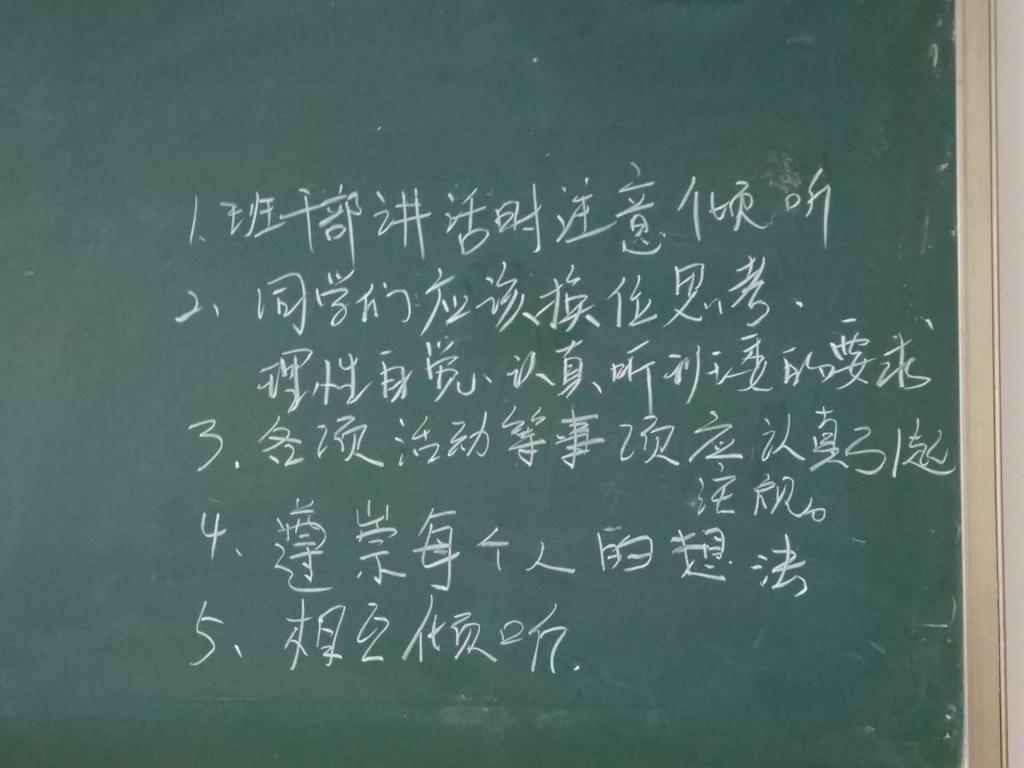 1.班干部讲话时注意倾听
2、同学们应该换位思考、
理性自觉、认真、听班委的要求
3.各项活动等事项应认真引起
注视。
4、遵崇每个人的想法
5、相互倾听.